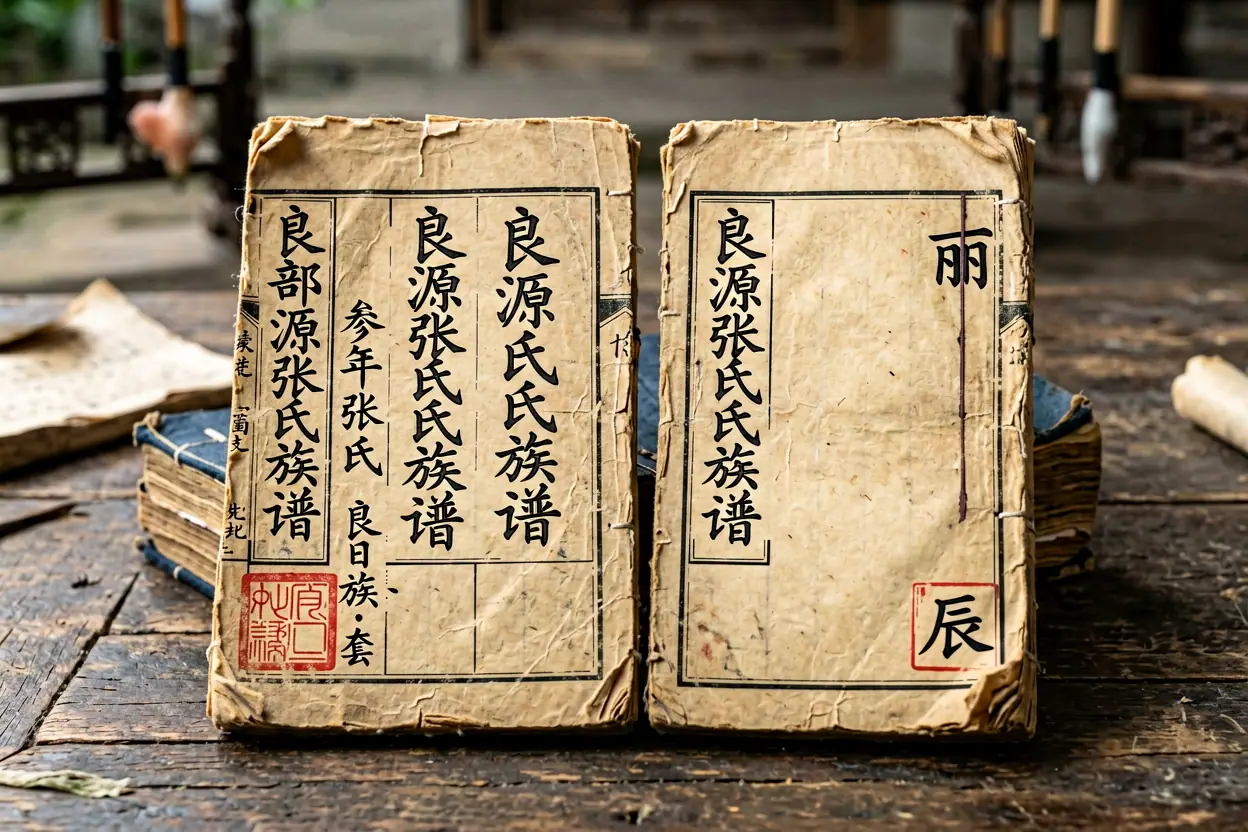 良源氏氏族谱
良源张氏氏族谱
参年张氏
良日族·套
良部源张氏族谱
丽
辰
良源张氏氏族谱